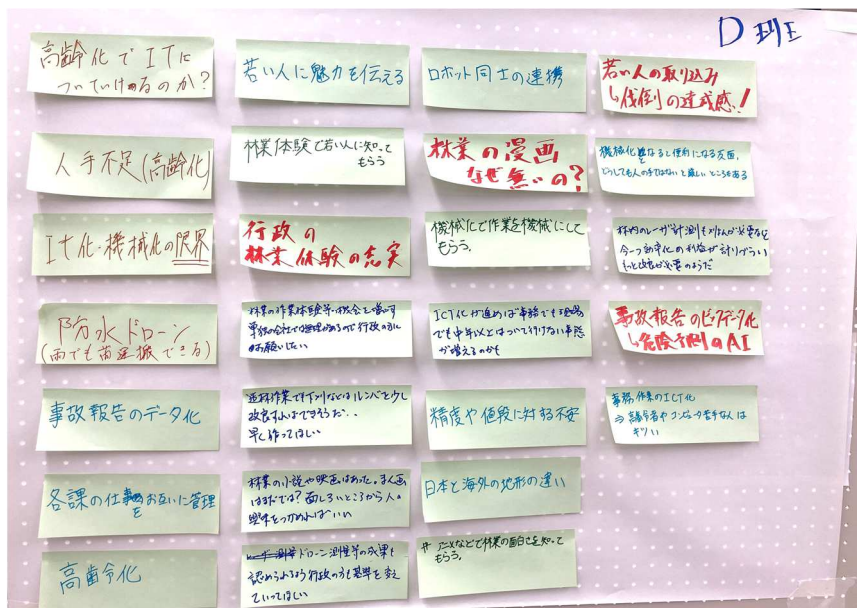 D班
高齢化でITに
ついていけるのか?
人手不足(高齢化)
IT化・機械化の限界
防水ドローン
(雨でも苗運搬できる)
事故報告のデータ化
各課の仕事をお互いに管理
高齢化
若い人に魅力を伝える
林業体験で若い人に知って
もらう
行政の
林業体験の充実
林業の作業体験等の機会を増やす
単独の会社では無理があるので行政の方に
お願いしたい
造林作業でも下刈などはルンバを少し
改良すればできそうだ..
早く作ってほしい
林業の小説や映画はあった。まん画
はまだでは?面しろいところから人の
興味をつかめればいい
ドローン測量等の成果も
認められるよう行政の方も基準を変え
ていってほしい
ロボット同士の連携
林業の漫画
なぜ無いの?
機械化で作業を機械にして
もらう。
ICT化が進めば事務でも現場
でも中年以上はついて行けない事態
が増えるのかも
精度や値段に対する不安
日本と海外の地形の違い
アニメなどで林業の面白さを知って
もらう。
若い人の取り込み
↳伐倒の達成感!
機械化となると便利になる反面、
どうしても人の手ではないと厳しいところもある
林内のレーザ計測も刈払が必要など
今一つ効率化の利益が計りづらい
もっと改良が必要のようだ
事故報告のビックデータ化
↳危険予測のAI
事務作業のICT化
⇒高齢者やコンピュータ苦手な人は
キツい